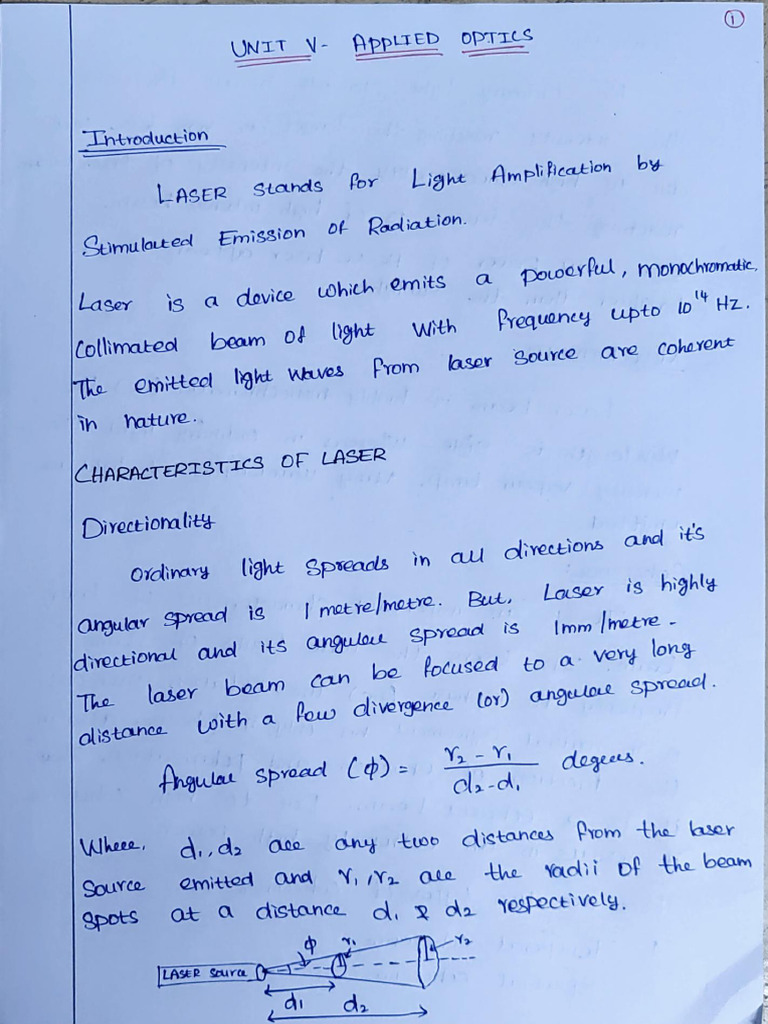 1
UNIT V- APPLIED OPTICS
Introduction
LASER stands for Light Amplification by
Stimulated Emission of Radiation.
Laser is a device which emits a powerful, monochromatic,
collimated beam of light with frequency upto 10¹⁴ HZ.
The emitted light waves from laser source are coherent
in nature.
CHARACTERISTICS OF LASER
Directionality
Ordinary light spreads in all directions and it's
angular spread is 1 metre/metre. But, Laser is highly
directional and its angular spread is 1mm/metre.
The laser beam can be focused to a very long
distance with a few divergence (or) angular spread.
Angular spread (ϕ) = r₂ - r₁ / d₂ - d₁ degrees.
Where, d₁, d₂ are any two distances from the laser
source emitted and r₁, r₂ are the radii of the beam
spots at a distance d₁ & d₂ respectively.
ϕ r₁ r₂
LASER source
d₁ d₂